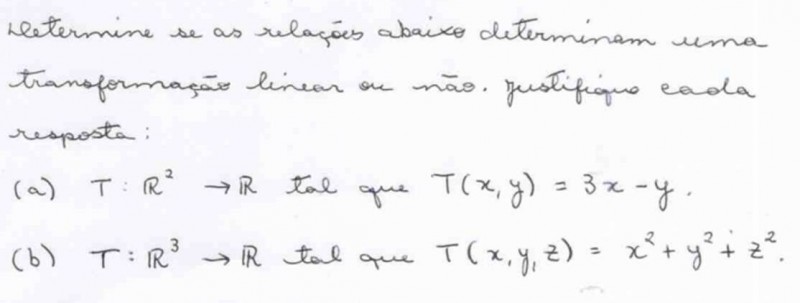 Determine se as relações abaixo determinam uma
transformação linear ou não. Justifique cada
resposta:
(a) T : ℝ² → ℝ tal que T(x, y) = 3x - y.
(b) T : ℝ³ → ℝ tal que T(x, y, z) = x² + y² + z².